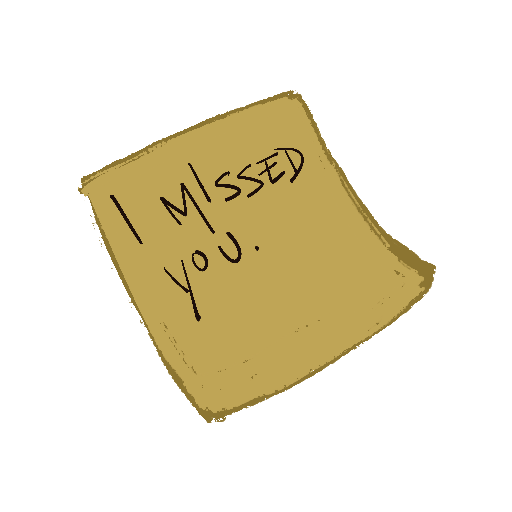 I MISSED
YOU.